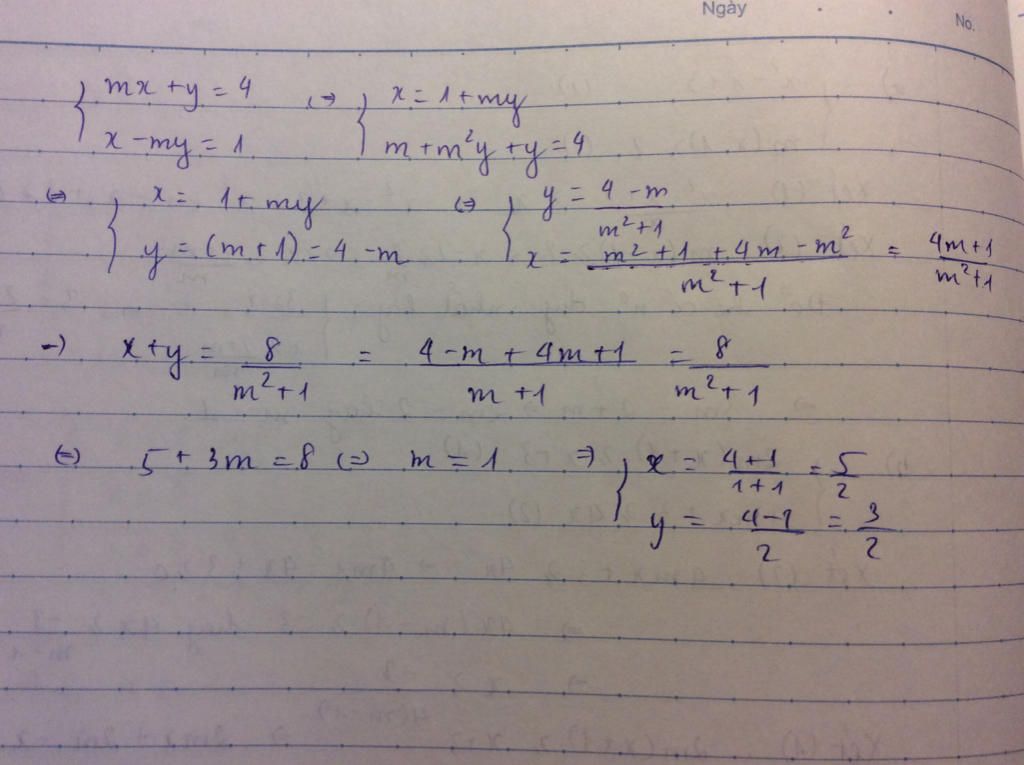 Ngày
No.
{ mx + y = 4 (⇒ { x = 1 + my
x - my = 1 m + m²y + y = 4
(=) { x = 1 + my (=) { y = (4 - m)/(m² + 1)
y = (m + 1) = 4 - m x = (m² + 1 + 4m - m²)/(m² + 1) = (4m + 1)/(m² + 1)
-) x + y = 8/(m² + 1) = (4 - m + 4m + 1)/(m + 1) = 8/(m² + 1)
(=) 5 + 3m = 8 (=) m = 1 => { x = (4 + 1)/(1 + 1) = 5/2
y = (4 - 1)/2 = 3/2